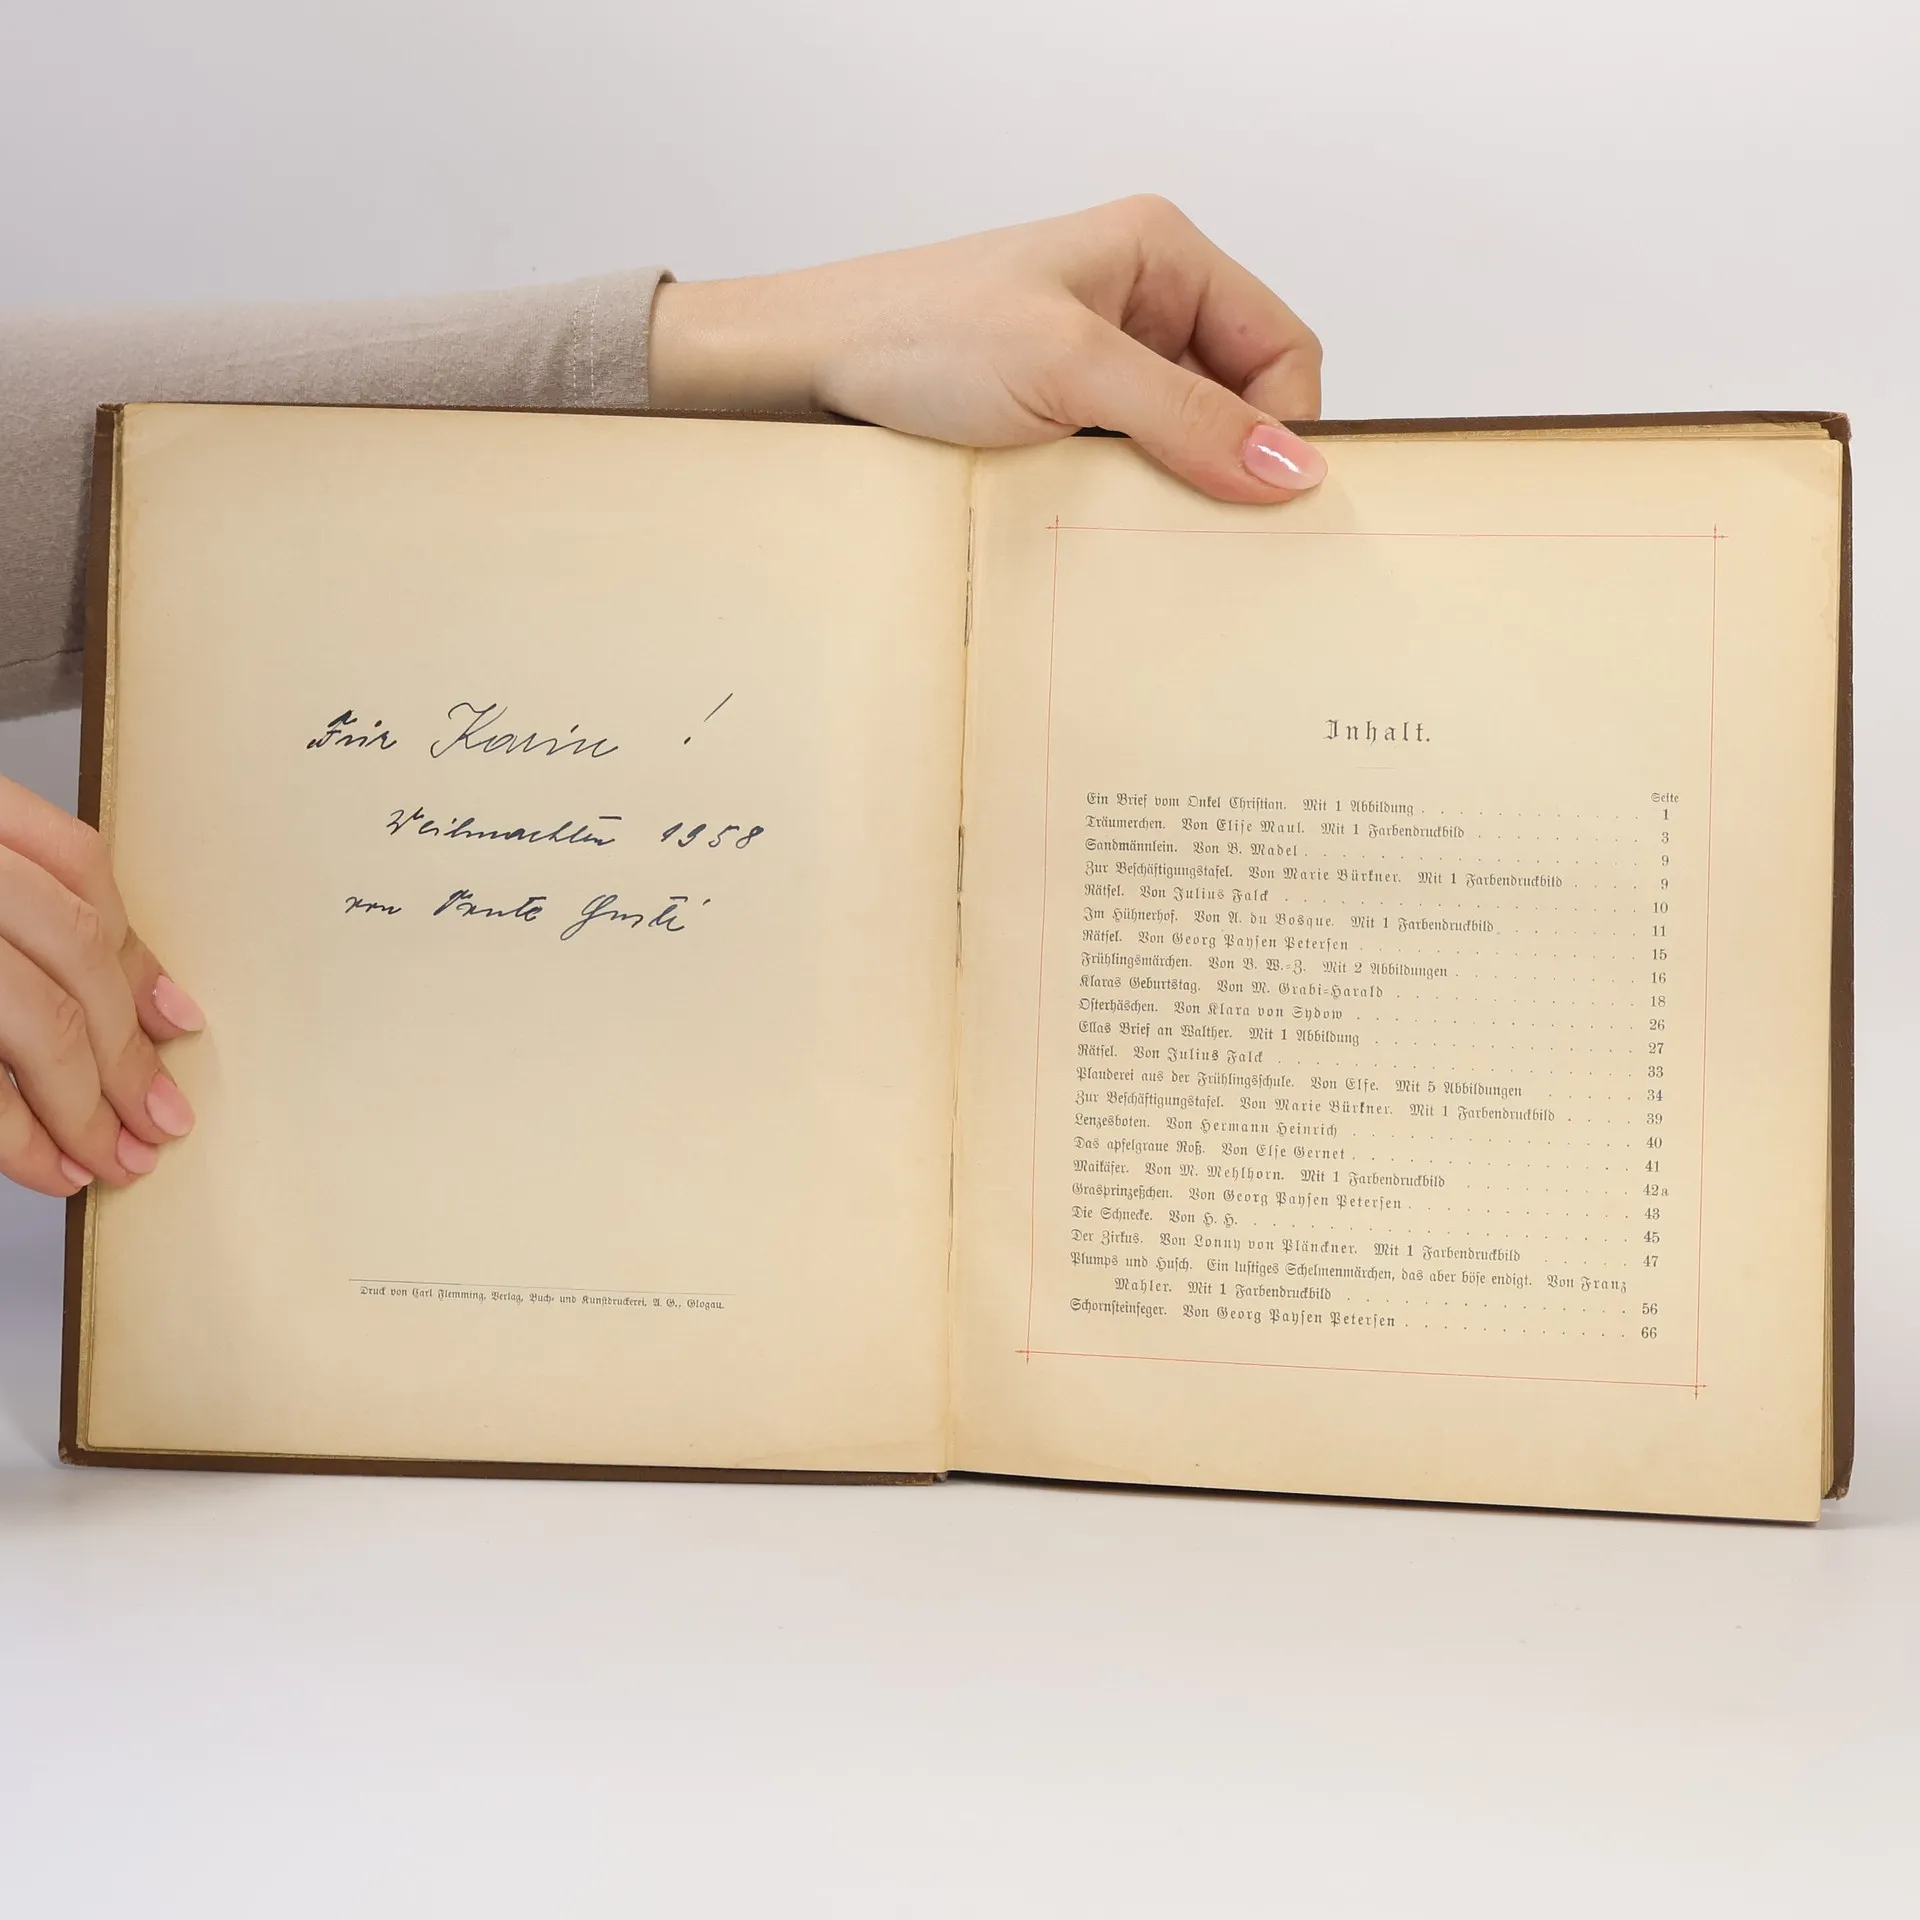 Für Karin !
Weihnachten 1958
von Tante Gusti
Druck von Carl Flemming, Verlag, Buch- und Kunstdruckerei, A. G., Glogau.
Inhalt.
Seite
Ein Brief vom Onkel Christian. Mit 1 Abbildung . . . . . . . . . . 1
Träumerchen. Von Elise Maul. Mit 1 Farbendruckbild . . . . . . . . 3
Sandmännlein. Von B. Madel . . . . . . . . . . . . . . 9
Zur Beschäftigungstafel. Von Marie Bürkner. Mit 1 Farbendruckbild . . . . 9
Rätsel. Von Julius Falck . . . . . . . . . . . . . . . 10
Im Hühnerhof. Von A. du Bosque. Mit 1 Farbendruckbild . . . . . . . 11
Rätsel. Von Georg Paysen Petersen . . . . . . . . . . . . 15
Frühlingsmärchen. Von B. W.-Z. Mit 2 Abbildungen . . . . . . . . 16
Klaras Geburtstag. Von M. Grabi-Harald . . . . . . . . . . . 18
Osterhäschen. Von Klara von Sydow . . . . . . . . . . . . 26
Ellas Brief an Walther. Mit 1 Abbildung . . . . . . . . . . . 27
Rätsel. Von Julius Falck . . . . . . . . . . . . . . . 33
Plauderei aus der Frühlingsschule. Von Elfe. Mit 5 Abbildungen . . . . . 34
Zur Beschäftigungstafel. Von Marie Bürkner. Mit 1 Farbendruckbild . . . . 39
Lenzesboten. Von Hermann Heinrich . . . . . . . . . . . . 40
Das apfelgraue Roß. Von Else Gernet . . . . . . . . . . . . 41
Maikäfer. Von M. Mehlhorn. Mit 1 Farbendruckbild . . . . . . . . 42a
Grasprinzeßchen. Von Georg Paysen Petersen . . . . . . . . . . 43
Die Schnecke. Von H. H. . . . . . . . . . . . . . . . 45
Der Zirkus. Von Lonny von Plänckner. Mit 1 Farbendruckbild . . . . . 47
Plumps und Husch. Ein lustiges Schelmenmärchen, das aber böse endigt. Von Franz
Mahler. Mit 1 Farbendruckbild . . . . . . . . . . . . 56
Schornsteinfeger. Von Georg Paysen Petersen . . . . . . . . . . 66